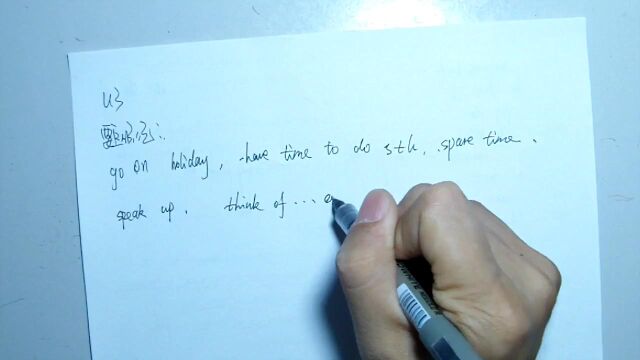 U3
go on holiday, have time to do sth, spare time.
speak up. think of ...